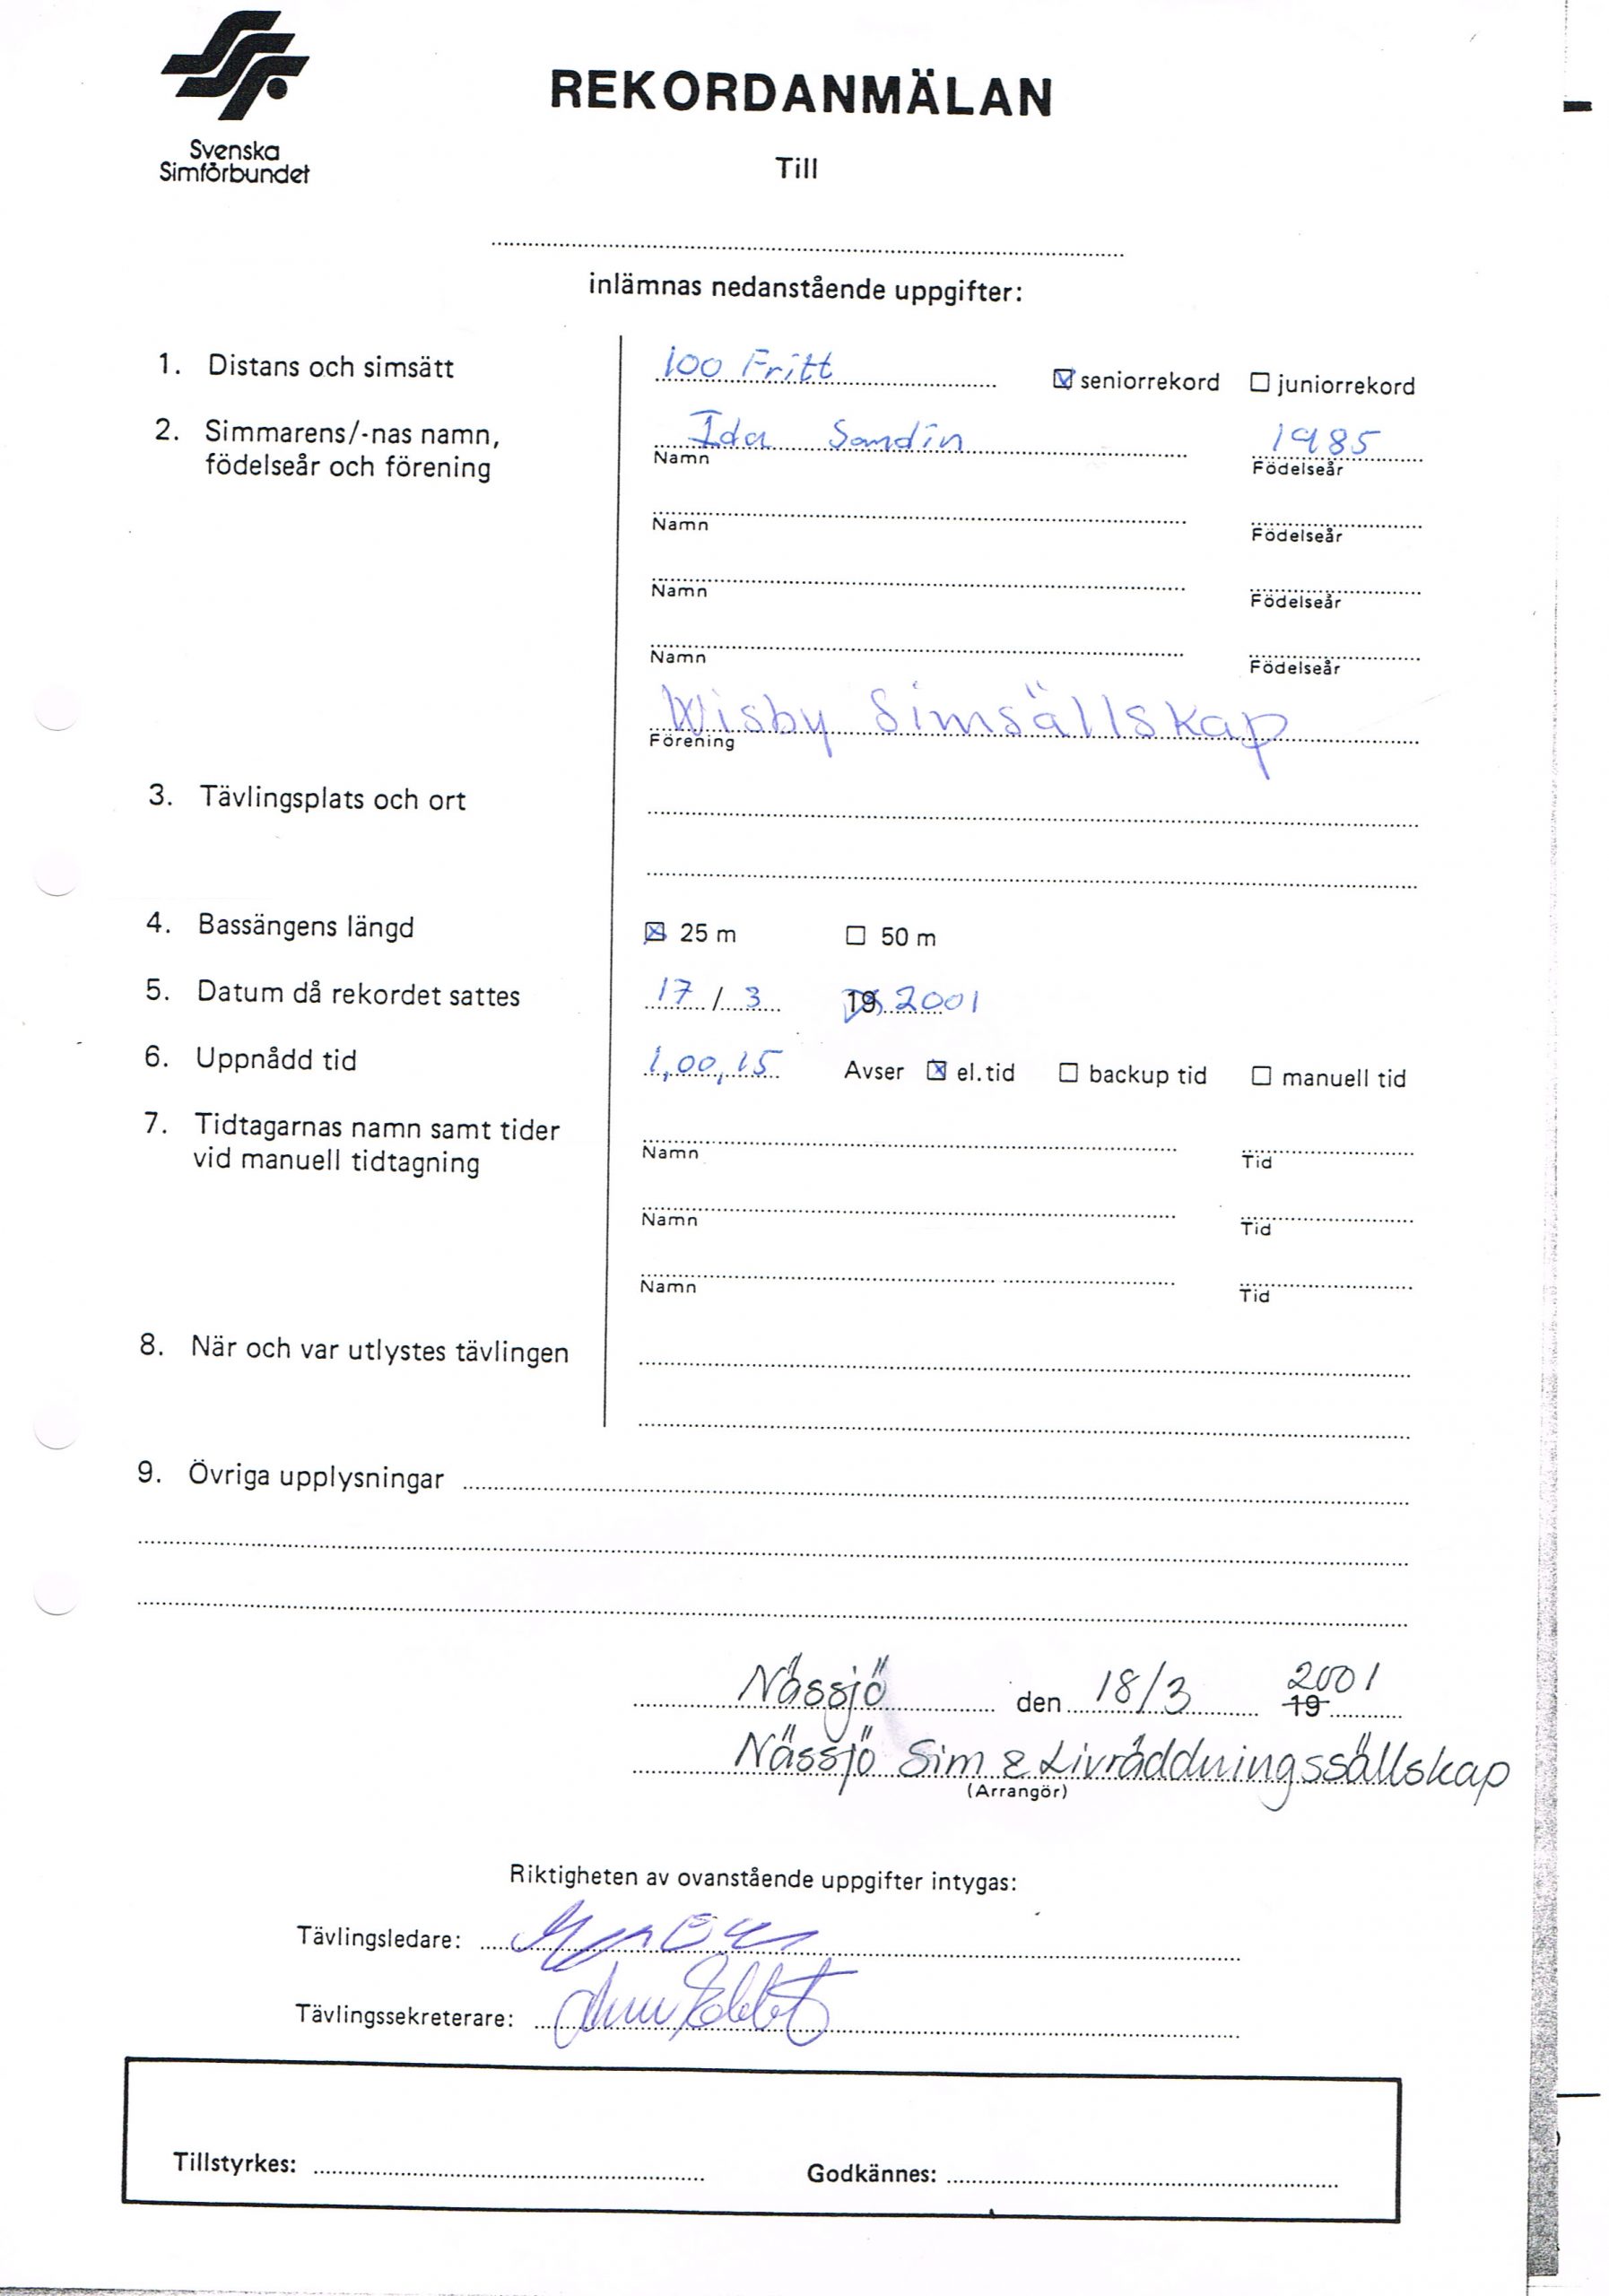 Svenska
Simförbundet
REKORDANMÄLAN
Till
inlämnas nedanstående uppgifter:
1. Distans och simsätt 100 Fritt seniorrekord juniorrekord
2. Simmarens/-nas namn, födelseår och förening
Ida Sandin 1985
Namn Födelseår
Namn Födelseår
Namn Födelseår
Namn Födelseår
Wisby Simsällskap
Förening
3. Tävlingsplats och ort
4. Bassängens längd 25 m 50 m
5. Datum då rekordet sattes 17 / 3 19 2001
6. Uppnådd tid 1,00,15 Avser el. tid backup tid manuell tid
7. Tidtagarnas namn samt tider
vid manuell tidtagning
Namn Tid
Namn Tid
Namn Tid
8. När och var utlystes tävlingen
9. Övriga upplysningar
Nässjö den 18/3 19 2001
Nässjö Sim & Livräddningssällskap
(Arrangör)
Riktigheten av ovanstående uppgifter intygas:
Tävlingsledare:
Tävlingssekreterare:
Tillstyrkes: Godkännes: